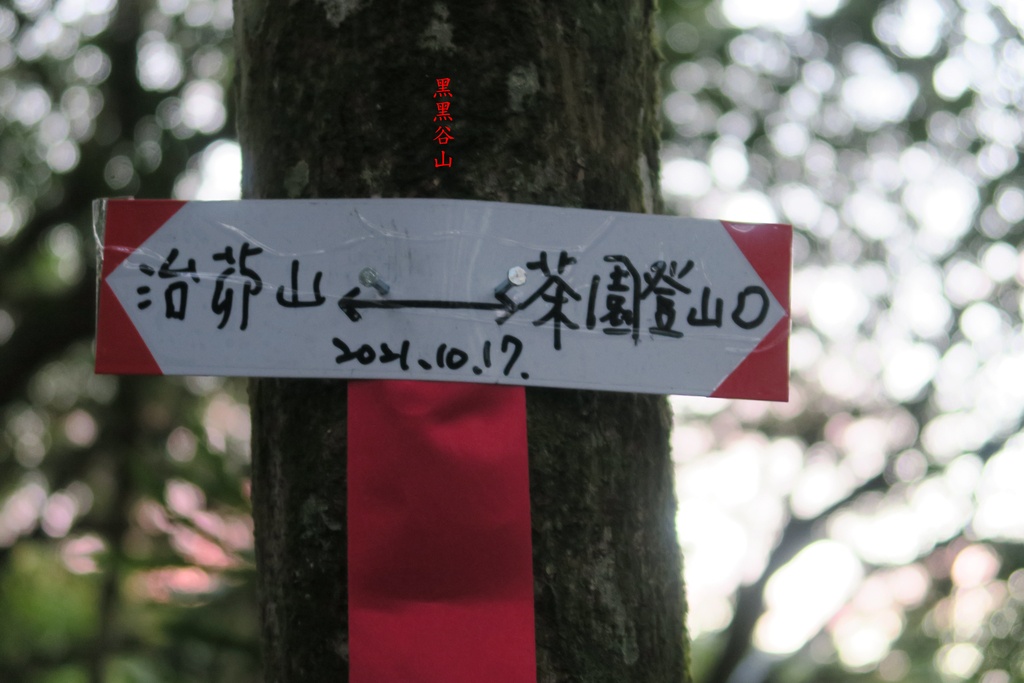 黑黑谷山
治茆山 ⟷ 茶園登山口
2021.10.17.